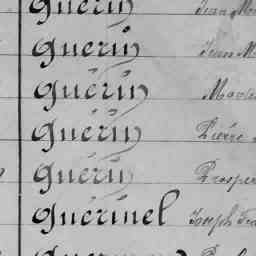 Guérin Jean
Guérin Jean
Guérin
Guérin Pierre
Guérin Prosper
Guérinel Joseph